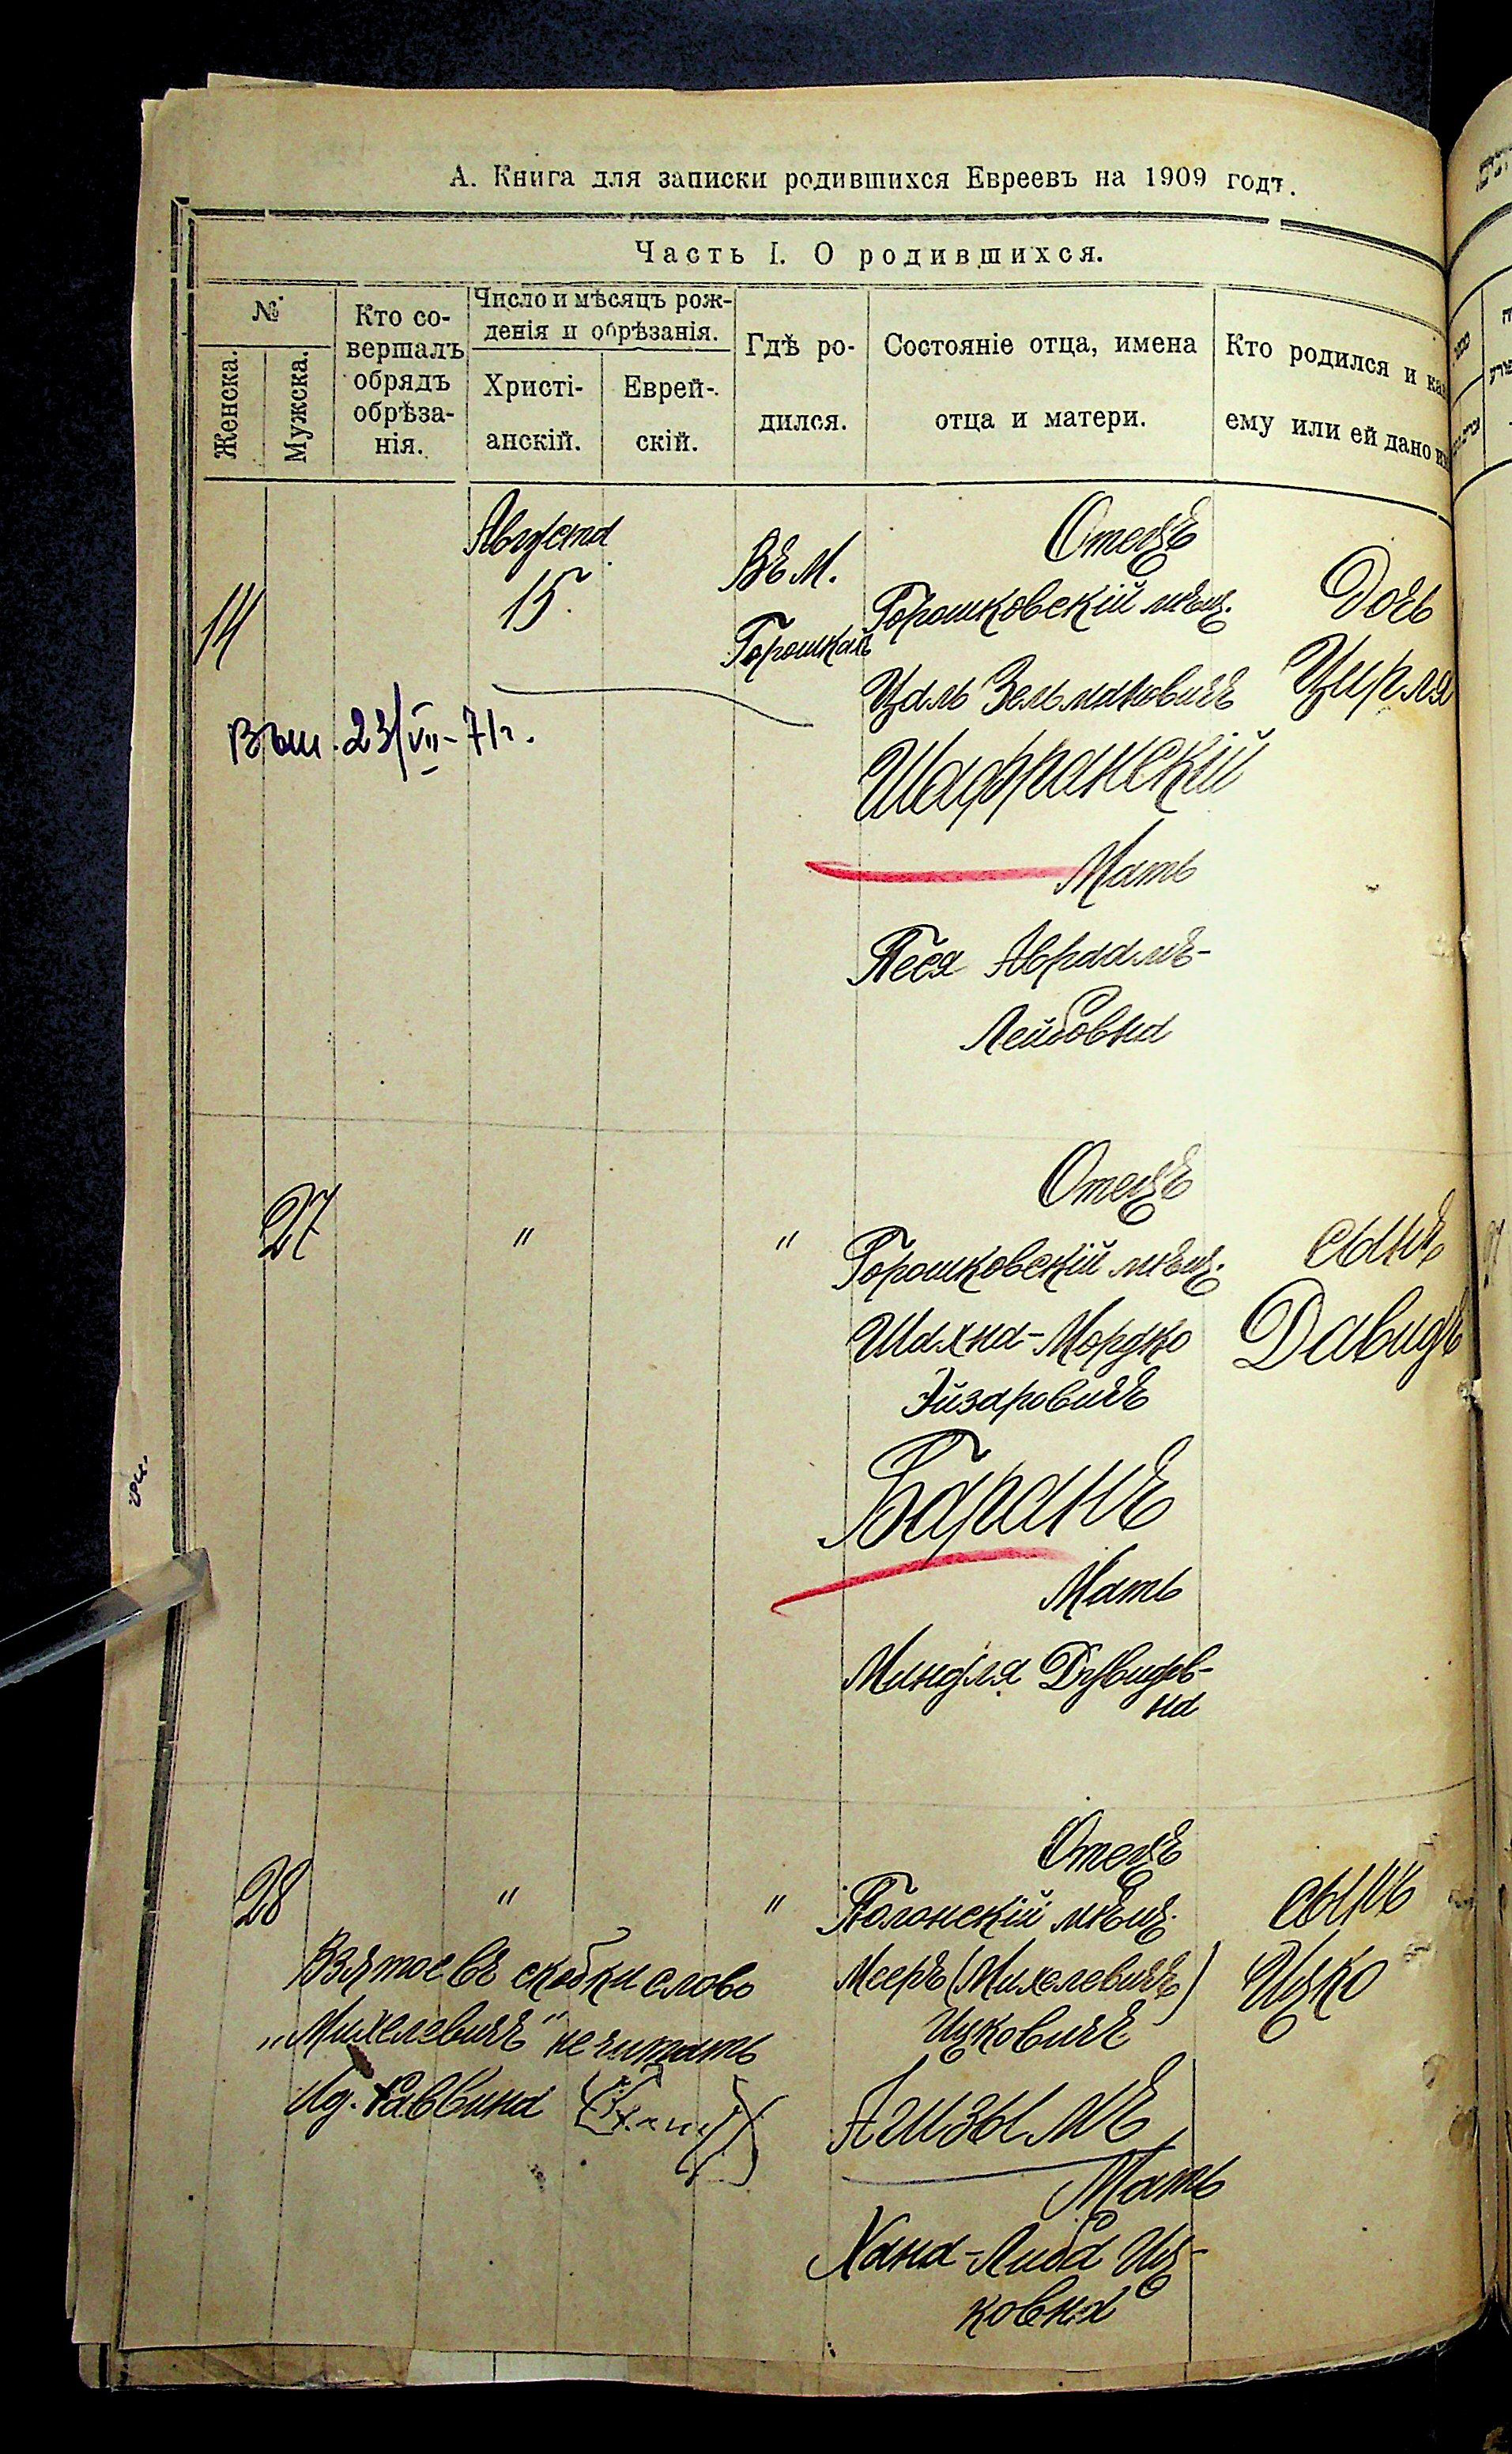 А. Книга для записки родившихся Евреевъ на 1909 годъ.
Часть I. О родившихся.
№
Женска.
Мужска.
Кто со-
вершалъ
обрядъ
обрѣза-
нія.
Число и мѣсяцъ рож-
денія и обрѣзанія.
Христі-
анскій.
Еврей-
скій.
Гдѣ ро-
дился.
Состояніе отца, имена
отца и матери.
Кто родился и ка
ему или ей дано и
14
Августа
15.
Въ м.
Горошкахъ
Отецъ
Горошковскій мѣщ.
Цаль Зельмановичъ
Шафранскій
Мать
Песя Авраамъ-
Лейбовна
Дочь
Цирля
23/VII-71г.
27
"
"
Отецъ
Горошковскій мѣщ.
Шахна-Мордко
Эйзаровичъ
Баранъ
Мать
Миндля Давидов-
на
сынъ
Давидъ
28
"
"
Отецъ
Полонскій мѣщ.
Мееръ (Михелевичъ)
Ицковичъ
Агизымъ
Мать
Хана-Либа Иц-
ковна
сынъ
Ицко
Взятое въ скобки слово
„Михелевичъ" не читать
Раввина